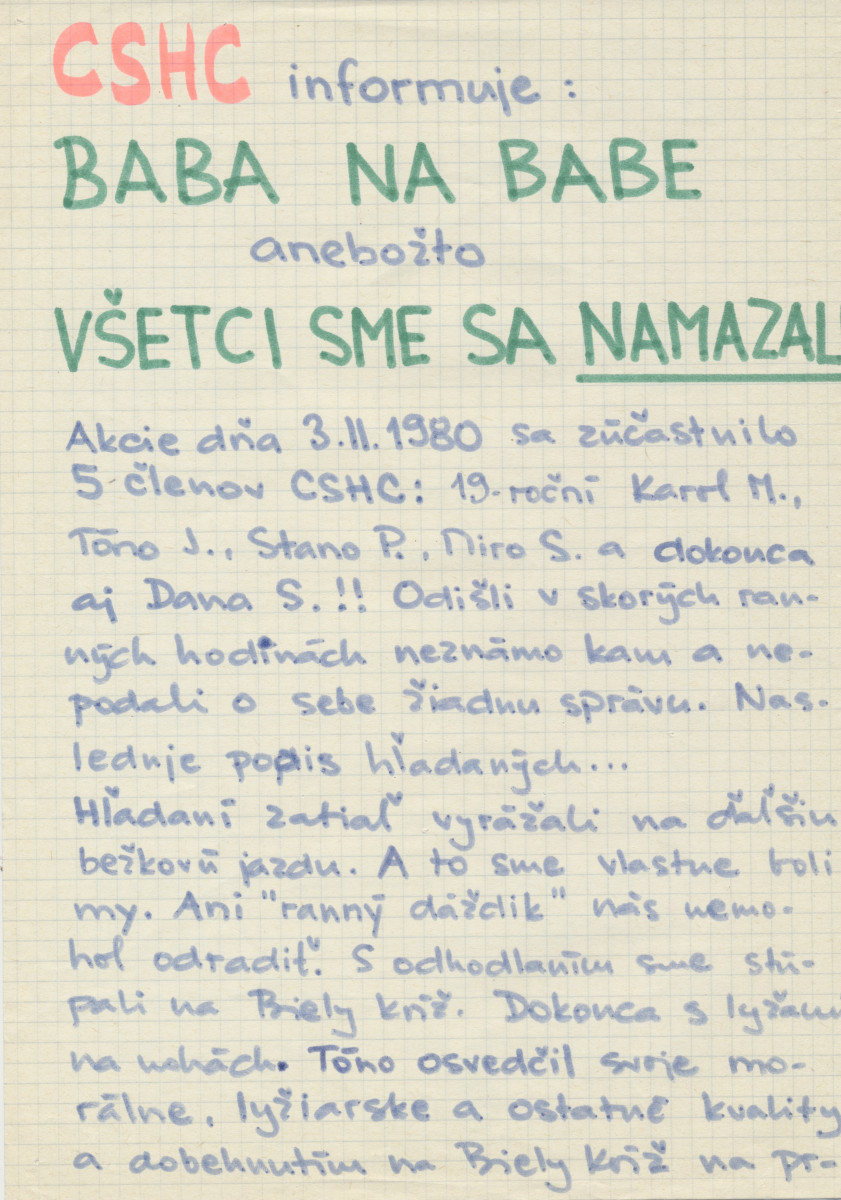 CSHC informuje:
BABA NA BABE
anebožto
VŠETCI SME SA NAMAZAL
Akcie dňa 3.II.1980 sa zúčastnilo
5 členov CSHC: 19-roční Karol M.,
Tóno J., Stano P., Miro S. a dokonca
aj Dana S.!! Odišli v skorých ran-
ných hodinách neznámo kam a ne-
podali o sebe žiadnu správu. Nas-
leduje popis hľadaných...
Hľadaní zatiaľ vyrážali na ďaľšiu
bežkovú jazdu. A to sme vlastne boli
my. Ani "ranný dáždik" nás nemo-
hol odradiť. S odhodlaním sme stú-
pali na Biely kríž. Dokonca s lyžami
na nohách. Tóno osvedčil svoje mo-
rálne, lyžiarske a ostatné kvality
a dobehnutím na Biely Kríž na pr-